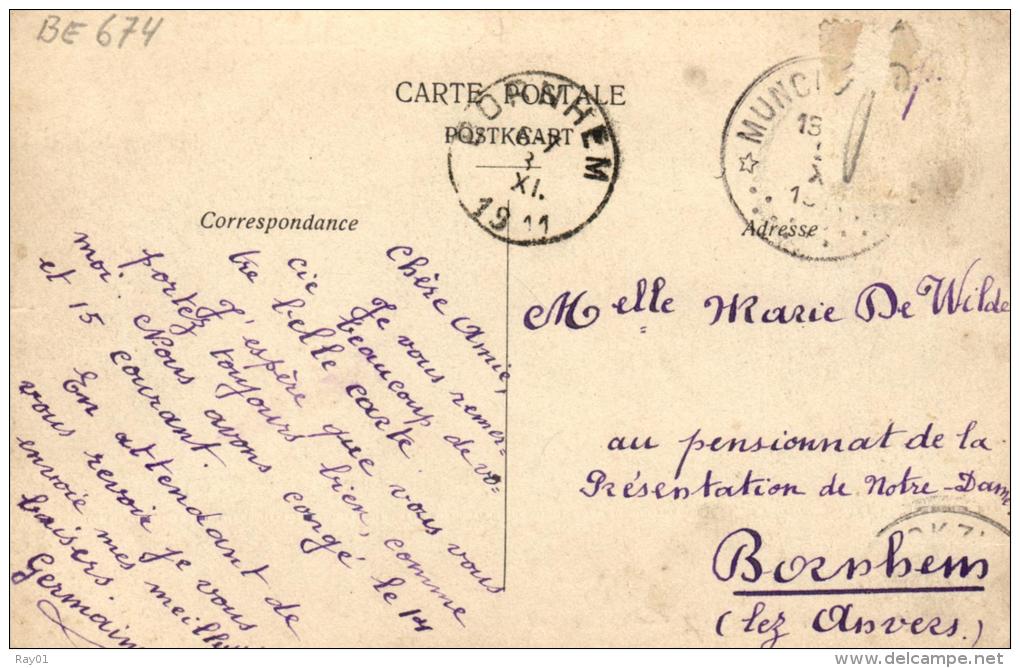 BE 674
CARTE POSTALE
POSTKAART
BORNHEM
8
XI.
1911
MUNC
Correspondance
Adresse
Chère Amie,
Je vous remer-
cie beaucoup de vo-
tre belle carte.
J'espère que vous vous
portez toujours bien, comme
moi. Nous avons congé le 14
et 15 courant.
En attendant de
vous revoir je vous
envoie mes meill
baisers.
Germain
Melle Marie De Wilde
au pensionnat de la
Présentation de Notre-Dame
Bornhem
(lez Anvers.)
Ray01
delcampe.net